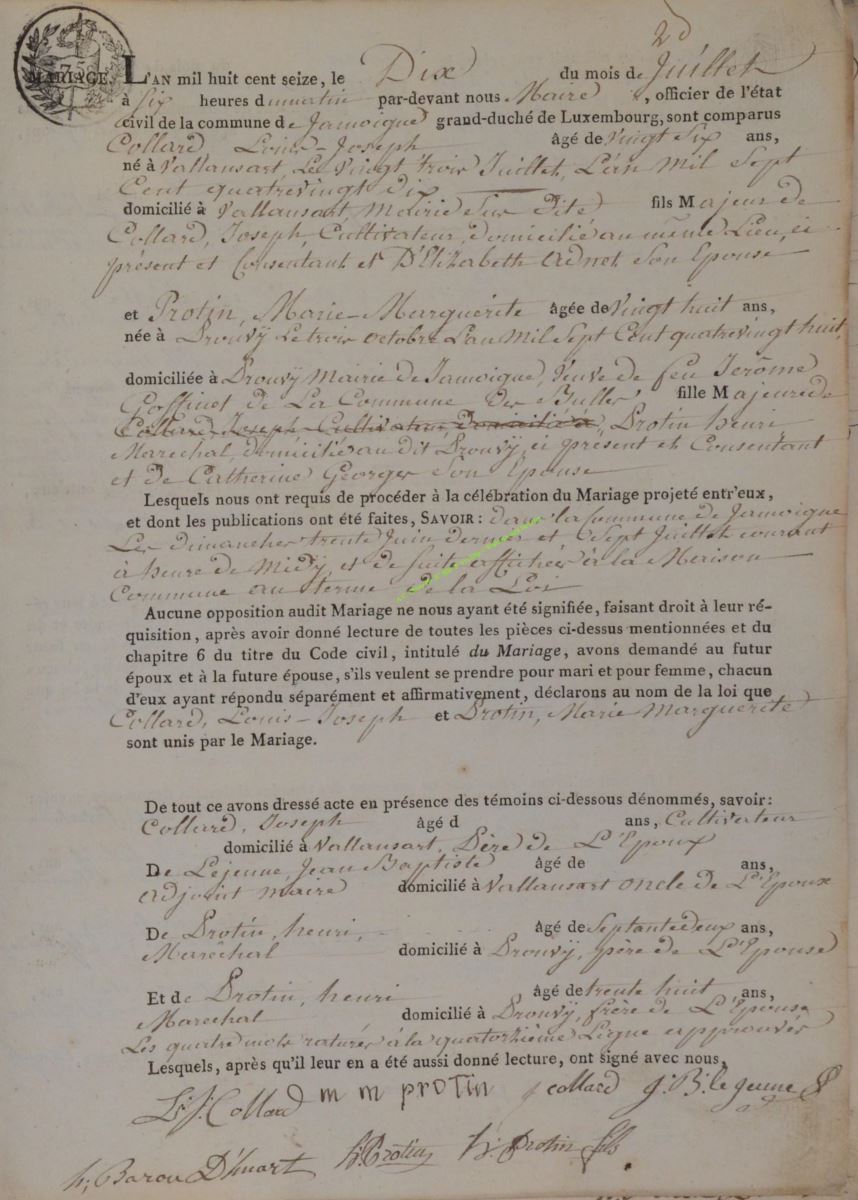 2d
75
MARIAGE. L'AN mil huit cent seize, le Dix du mois de Juillet
à Six heures du matin par-devant nous Maire, officier de l'état
civil de la commune de Jamoigne grand-duché de Luxembourg, sont comparus
Collard Louis-Joseph âgé de Vingt Six ans,
né à Vallansart, Le Vingt trois Juillet, L'an Mil Sept
Cent quatrevingt dix
domicilié à Vallansart, Mairie Sus Dite fils Majeur de
Collard, Joseph, Cultivateur, domicilié au même Lieu, ci
présent et Consentant et D'Elizabeth adnet Son Epouse
et Protin, Marie-Marguérite âgée de Vingt huit ans,
née à Prouvÿ Le trois octobre L'an Mil Sept Cent quatrevingt huit,
domiciliée à Prouvÿ Mairie de Jamoigne, Veuve de feu Jerôme
Goffinet de La Commune des Bulles fille Majeure de
Collard Joseph Cultivateur Domicilié à Protin henri
Marechal, domicilié au dit Prouvÿ, ci présent et Consentant
et de Catherine Georges Son Epouse
Lesquels nous ont requis de procéder à la célébration du Mariage projeté entr'eux,
et dont les publications ont été faites, SAVOIR: dans la Commune de Jamoigne
Les dimanches trente Juin dernier et Sept Juillet courant
à heure de Midÿ, et de suite affichées à la Maison
Commune au terme de la Loi
Aucune opposition audit Mariage ne nous ayant été signifiée, faisant droit à leur ré-
quisition, après avoir donné lecture de toutes les pièces ci-dessus mentionnées et du
chapitre 6 du titre du Code civil, intitulé du Mariage, avons demandé au futur
époux et à la future épouse, s'ils veulent se prendre pour mari et pour femme, chacun
d'eux ayant répondu séparément et affirmativement, déclarons au nom de la loi que
Collard, Louis-Joseph et Protin, Marie Marguerite
sont unis par le Mariage.
De tout ce avons dressé acte en présence des témoins ci-dessous dénommés, savoir:
Collard, Joseph âgé d ans, Cultivateur
domicilié à Vallansart, Père de L'Epoux
De Lejeune, Jean Baptiste âgé de ans,
adjoint maire domicilié à Vallansart oncle de L'Epoux
De Protin, henri, âgé de Septante deux ans,
Maréchal domicilié à Prouvÿ, père de L'Epouse
Et de Protin, henri âgé de trente huit ans,
Marechal domicilié à Prouvÿ, frère de L'Epouse
Les quatre mots raturés à la quatorzième Ligne approuvés
Lesquels, après qu'il leur en a été aussi donné lecture, ont signé avec nous,
L. J. Collard m m protin j collard j. B. le jeune
h; Baron D'huart h: Protin h: Protin fils